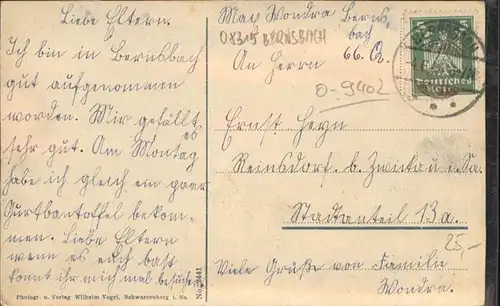 Liebe Eltern.
Ich bin in Bernsbach
gut aufgenommen
worden. Mir gefällt es
sehr gut. Am Montag
habe ich gleich ein paar
Gurtbantoffel bekom-
men. Liebe Eltern
wenn es euch bast
könnt ihr mich mal besuchen
Photogr. u. Verlag Wilhelm Vogel, Schwarzenberg i. Sa.
Max Wondra Berns
bach
08315 BERNSBACH
66. Q.
An Herrn
O-9402
Ernst Heyn
Reinsdorf b. Zwickau i. Sa.
Stadtanteil 13a.
25,-
Viele Grüße von Familie
Wondra.
Deutsches
Reich